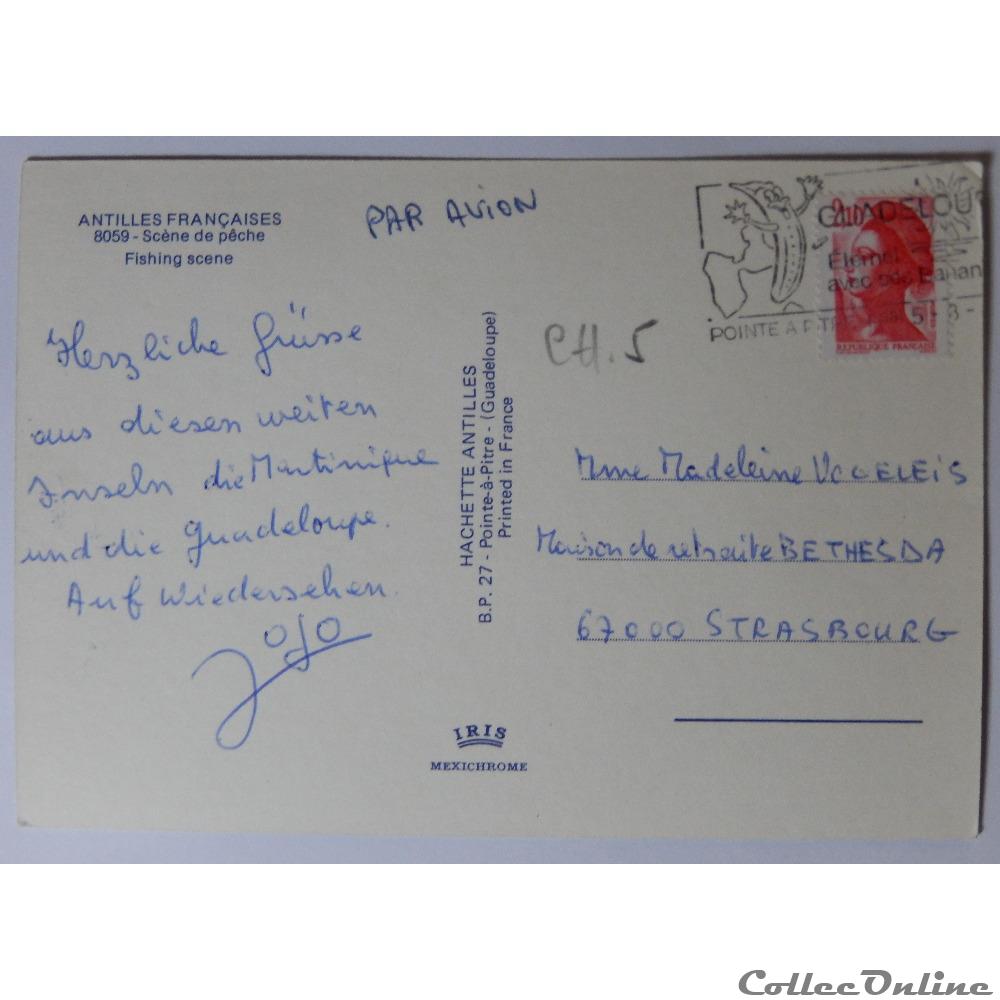 ANTILLES FRANÇAISES
8059 - Scène de pêche
Fishing scene
PAR AVION
Herzliche Grüsse
aus diesen weiten
Inseln die Martinique
und die Guadeloupe.
Auf Wiedersehen.
Jojo
HACHETTE ANTILLES
B.P. 27 - Pointe-à-Pitre - (Guadeloupe)
Printed in France
IRIS
MEXICHROME
2,10
GUADELOU
Eternel
avec
POINTE A PIT
5 - 3 -
REPUBLIQUE FRANÇAISE
CH. 5
Mme Madeleine VOGELEIS
Maison de retraite BETHESDA
67000 STRASBOURG
CollecOnline